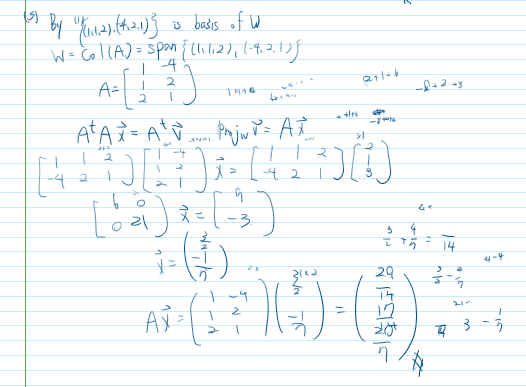 (5) By "(1) {(1,1,2),(-4,2,1)} is basis of W
W = Col(A) = span{(1,1,2), (-4,2,1)}
A = [1 -4; 1 2; 2 1]
AᵗA x⃗ = Aᵗ v⃗ Proj_W v⃗ = A x⃗
[1 1 2; -4 2 1] [1 -4; 1 2; 2 1] x⃗ = [1 1 2; -4 2 1] [2; 1; 3]
[6 0; 0 21] x⃗ = [9; -3]
x⃗ = (3/2; -1/7)
A x⃗ = (1 -4; 1 2; 2 1) (3/2; -1/7) = (29/14; 17/14; 20/7)
3/2 + 4/7 = /14
3/2 - 2/7
3 - 1/7